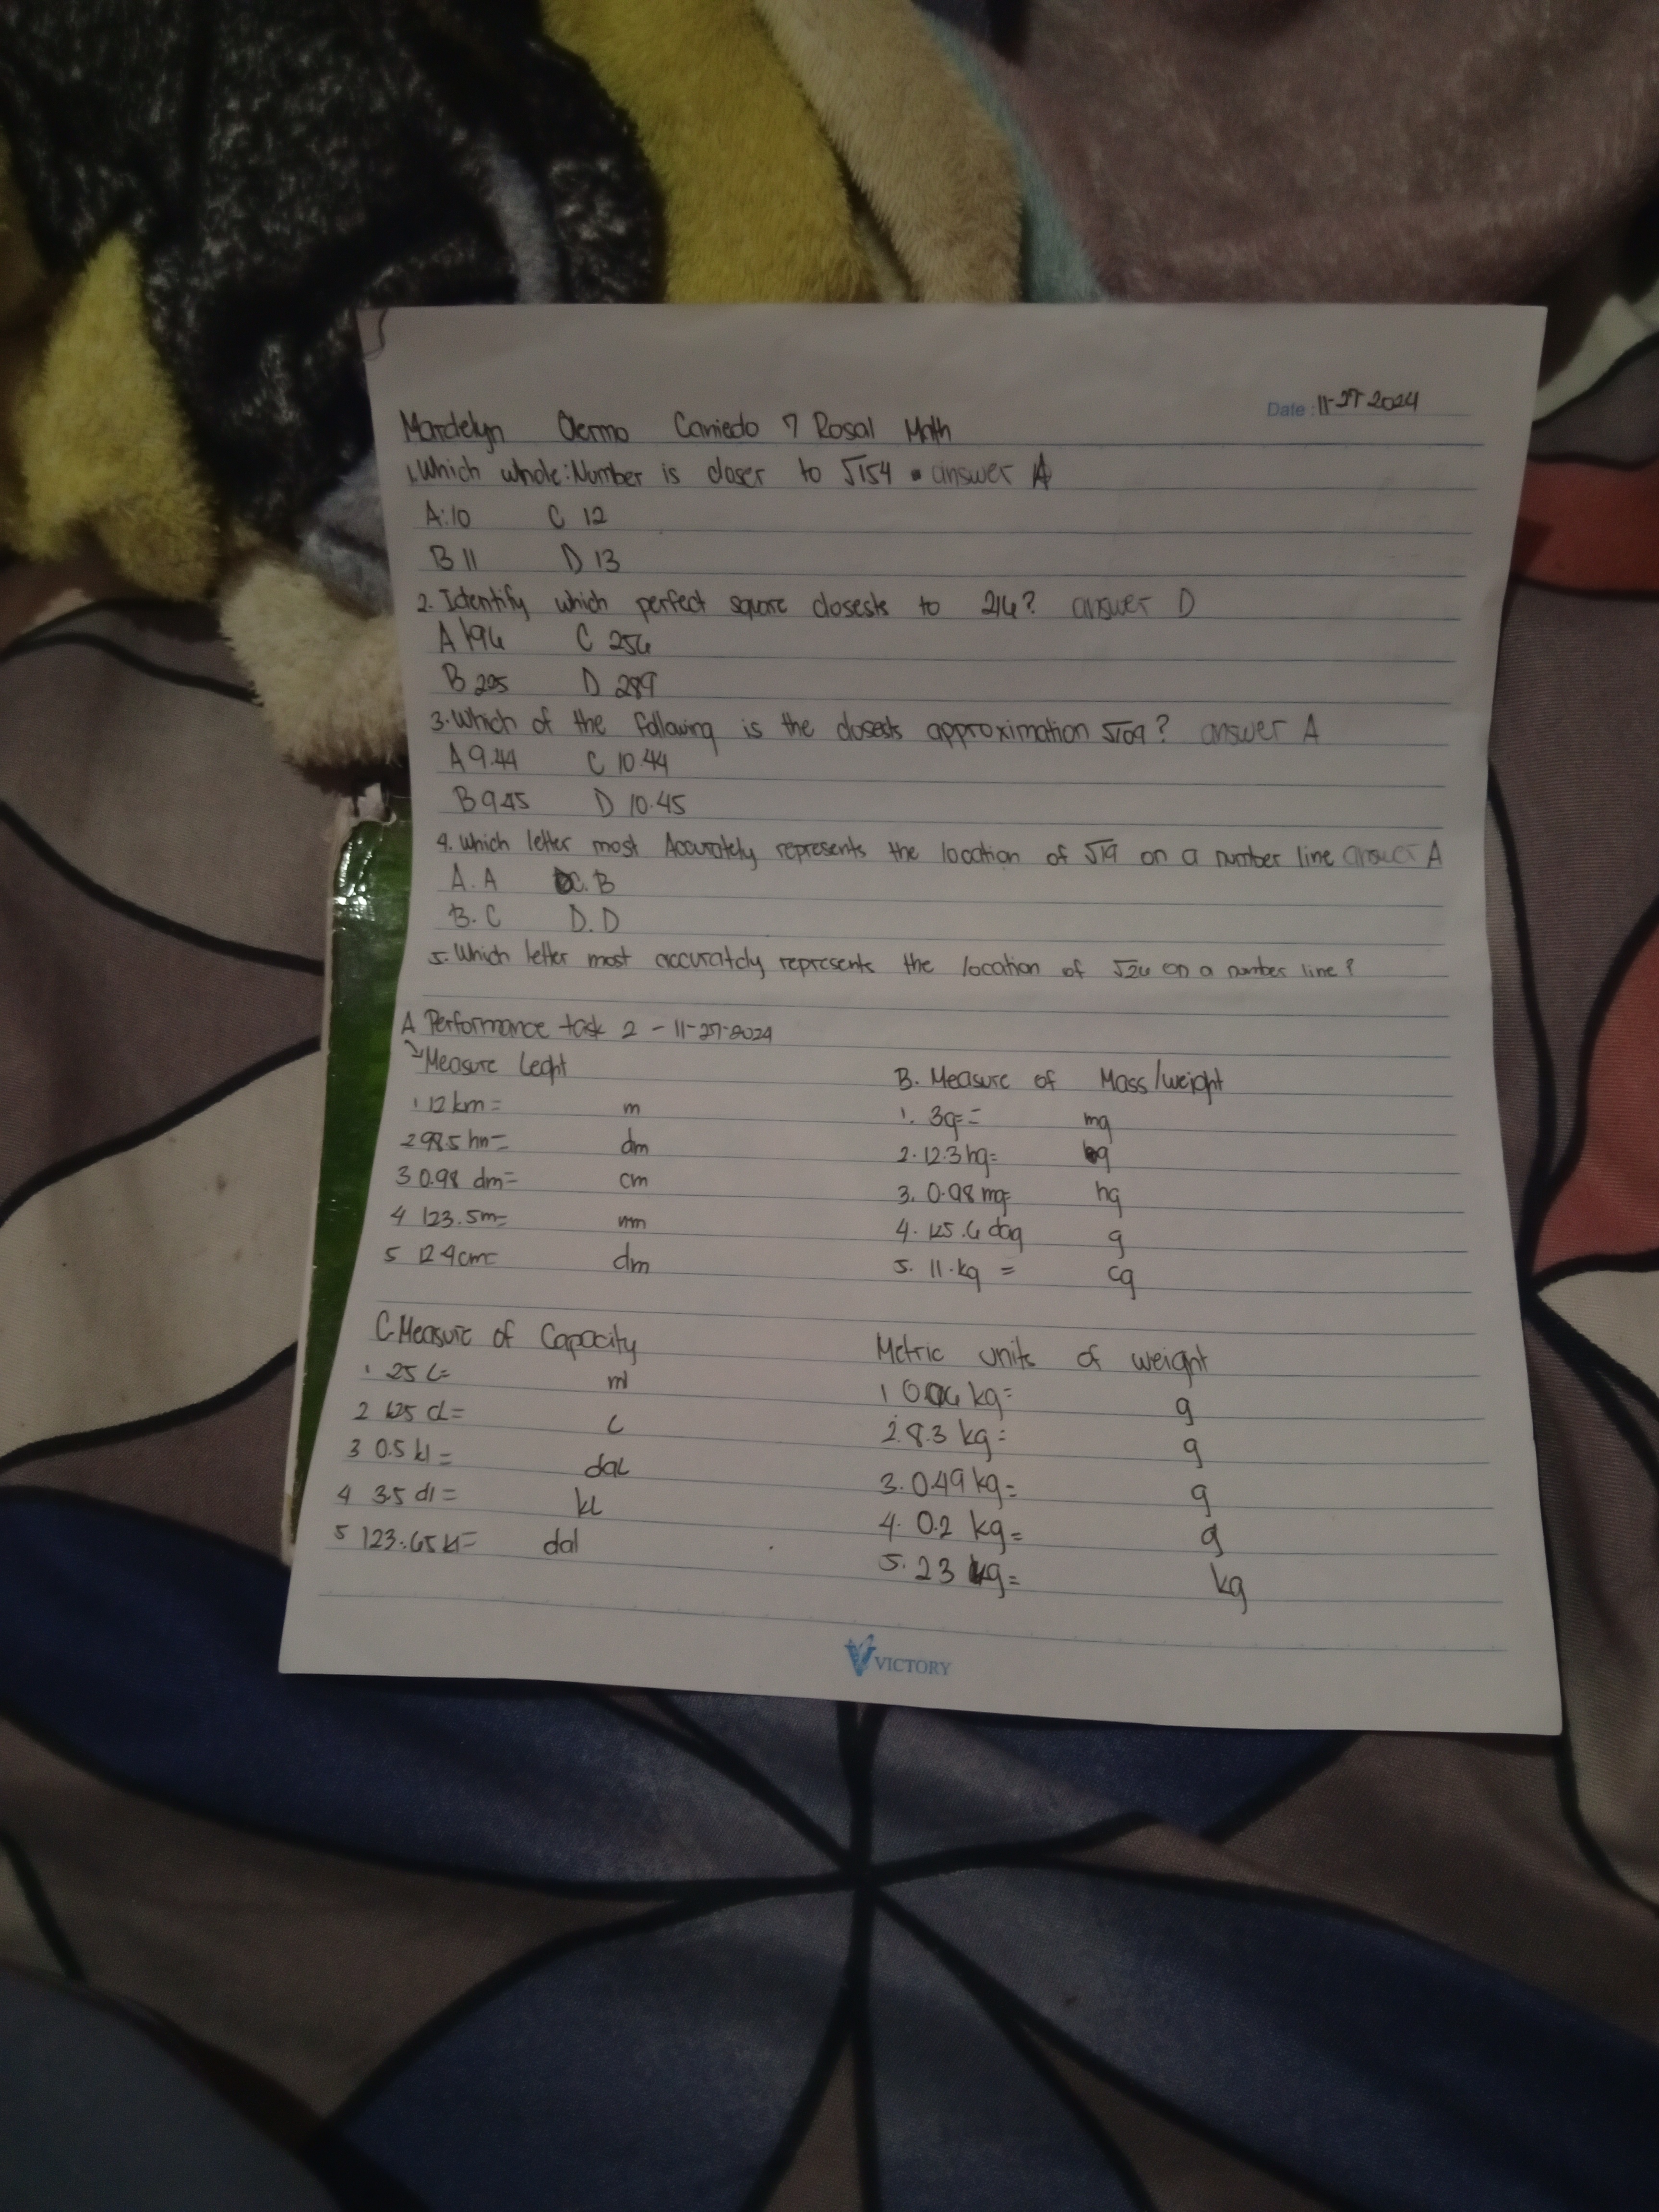 Date: 11-27-2024
Mardelyn Caniedo 7 Rosal Math
1. Which whole: Number is closer to √154 answer A
A: 10 C 12
B 11 D 13
2. Identify which perfect square closests to 216? answer D
A 196 C 256
B 225 D 289
3. Which of the following is the closests approximation √109? answer A
A 9.44 C 10.44
B 9.45 D 10.45
4. Which letter most Accurately represents the location of √19 on a number line answer A
A. A C. B
B. C D. D
5. Which letter most accurately represents the location of √26 on a number line?
A Performance task 2 - 11-27-2024
Measure Leght
1 12 km = m
2 98.5 hm = dm
3 0.98 dm = cm
4 123.5m = mm
5 124cm = dm
B. Measure of Mass/weight
1. 3g = mg
2. 12.3 hg =
3. 0.98 mg = hg
4. 125.6 dag g
5. 11.kg = cg
C. Measure of Capacity
1. 25 L = ml
2 625 cL = L
3 0.5 kl = daL
4 3.5 dl = kL
5 123.65 kl = dal
Metric units of weight
1 0.06 kg = g
2. 8.3 kg = g
3. 0.49 kg = g
4. 0.2 kg = g
5. 23 kg = kg
VICTORY